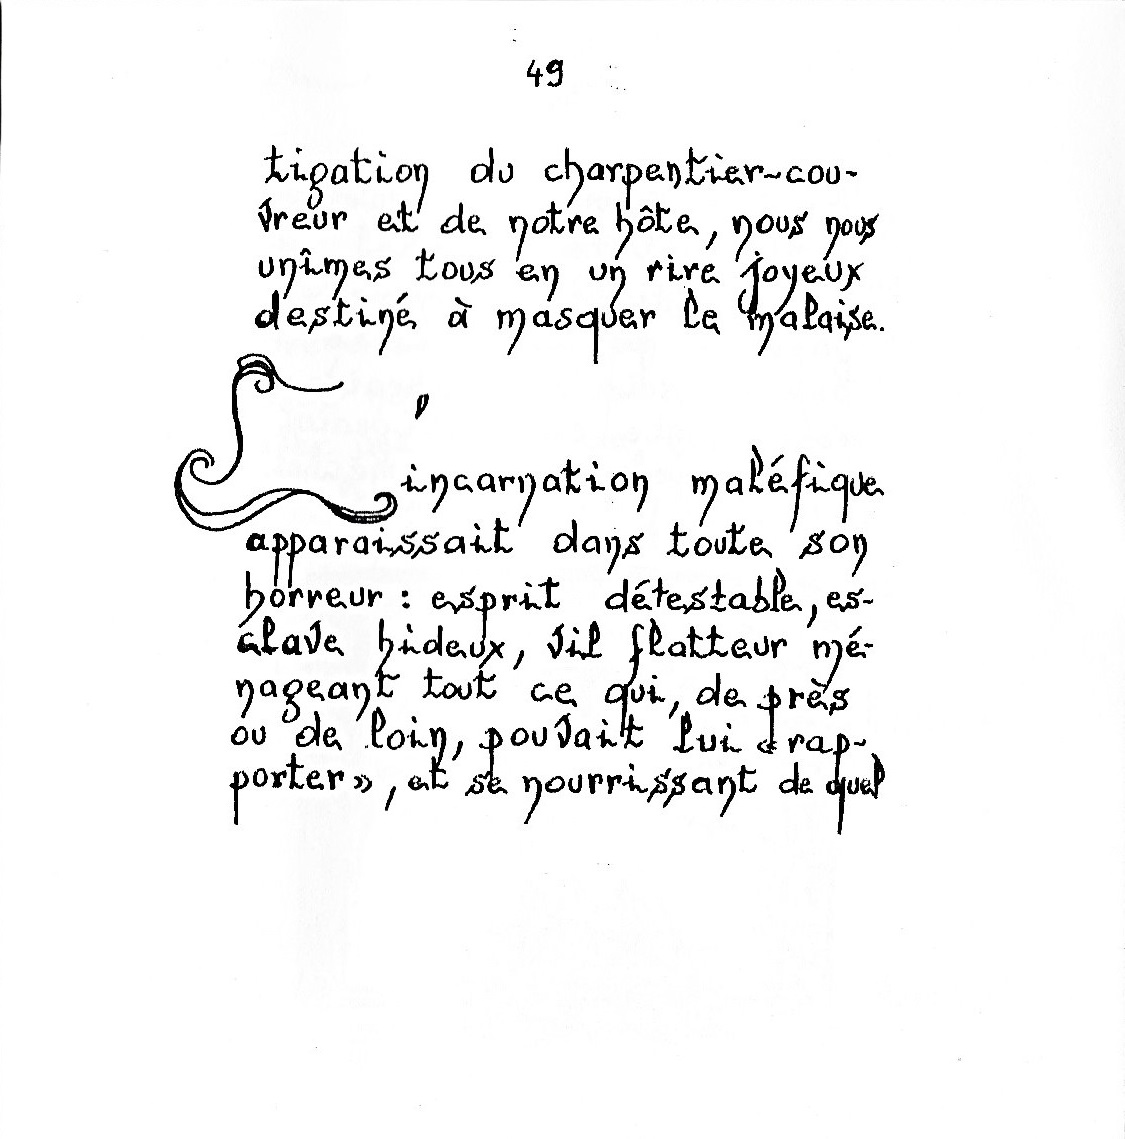 49
tigation du charpentier-cou-
vreur et de notre hôte, nous nous
unîmes tous en un rire joyeux
destiné à masquer le malaise.
L'
incarnation maléfique
apparaissait dans toute son
horreur : esprit détestable, es-
clave hideux, vil flatteur mé-
nageant tout ce qui, de près
ou de loin, pouvait lui « rap-
porter », et se nourrissant de quel